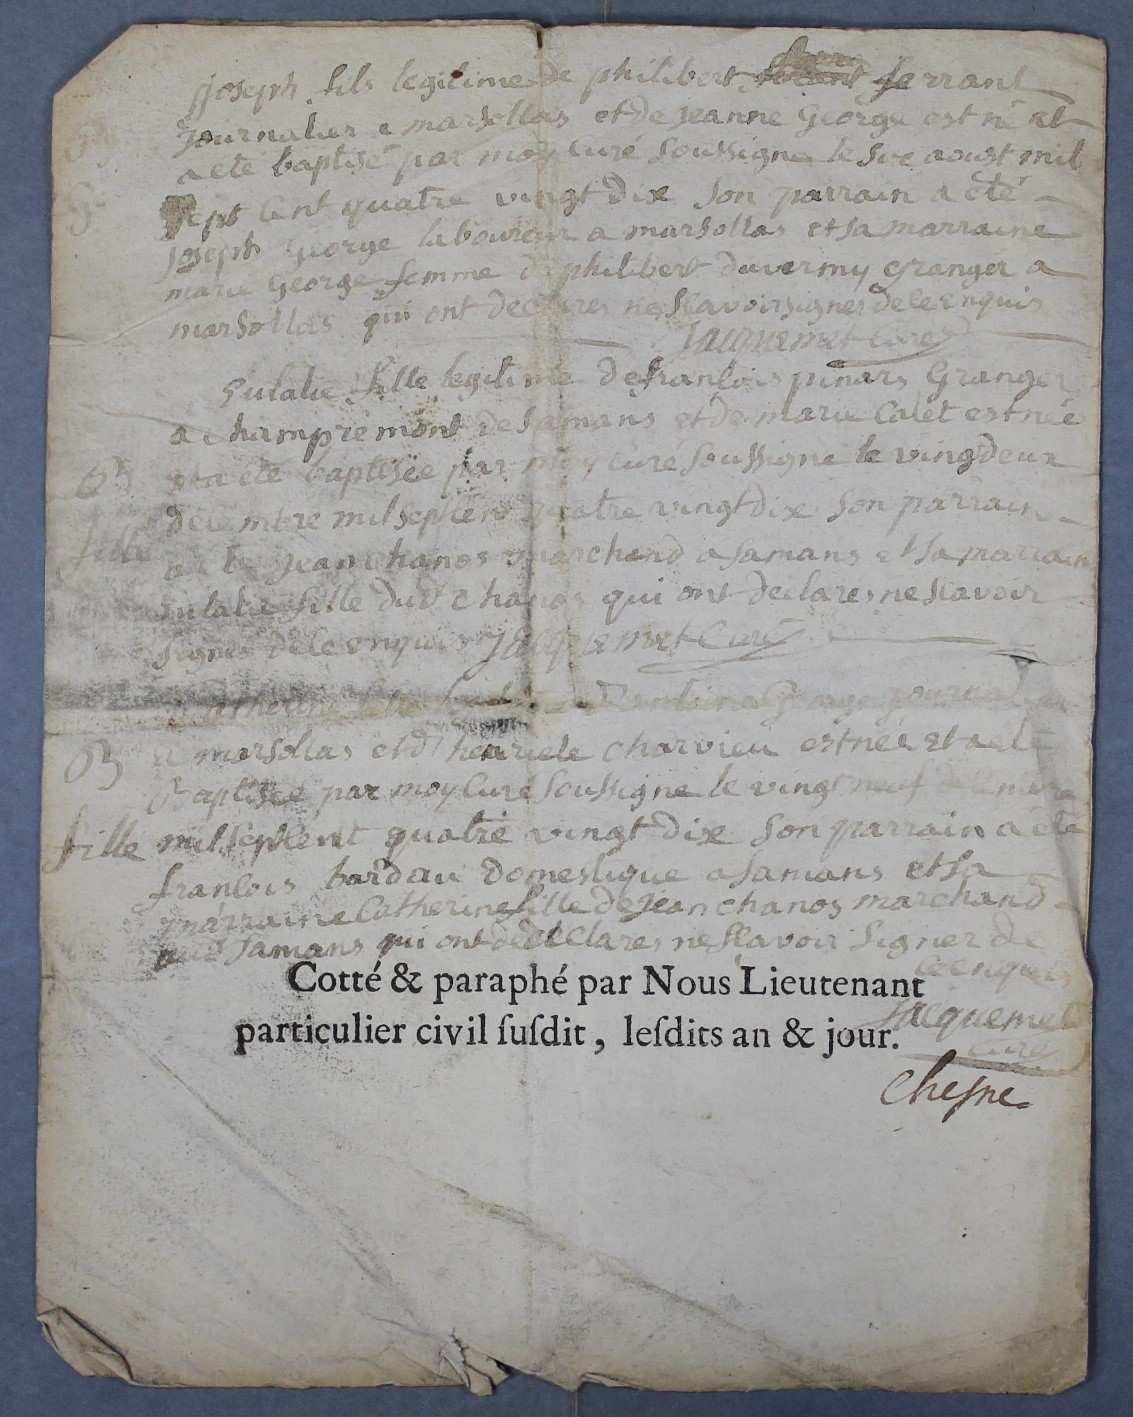 joseph fils legitime de philibert ferrant
journalier a marsollas et de jeanne George est né et
a ete baptisé par moy Curé Soussigne le Six aoust mil
Sept Cent quatre vingt dix Son parrain a été
joseph George laboureur a marsollas et sa marraine
marie George femme de philibert duvermy granger a
marsollas qui ont declares ne sSavoir signer de ce enquis
Jacquemet Curé
Eulalie fille legitime de francois pinars Granger
a Champremont de Samans et de marie Calet est née
et a ete baptisée par moy Curé Soussigne le vingt deux
B
decembre mil Sept Cent quatre vingt dix Son parrain
fille
a ete jean Chanos marchand a Samans et sa marraine
Eulalie fille dudt Chanos qui ont declares ne sCavoir
signer de ce enquis Jacquemet Curé
Catherine fille George journalier
B
a marsollas et d' henriete Charvieu est née et a ete
Baptisée par moy Curé Soussigne le vingt neuf decembre
fille
mil Sept Cent quatre vingt dix Son parrain a ete
francois bardau domestique a Samans et sa
marraine Catherine fille de jean Chanos marchand
Samans qui ont de declares ne sCavoir Signer de
ce enquis
Cotté & paraphé par Nous Lieutenant
Jacquemet
particulier civil ſuſdit, leſdits an & jour.
Curé
Chesne